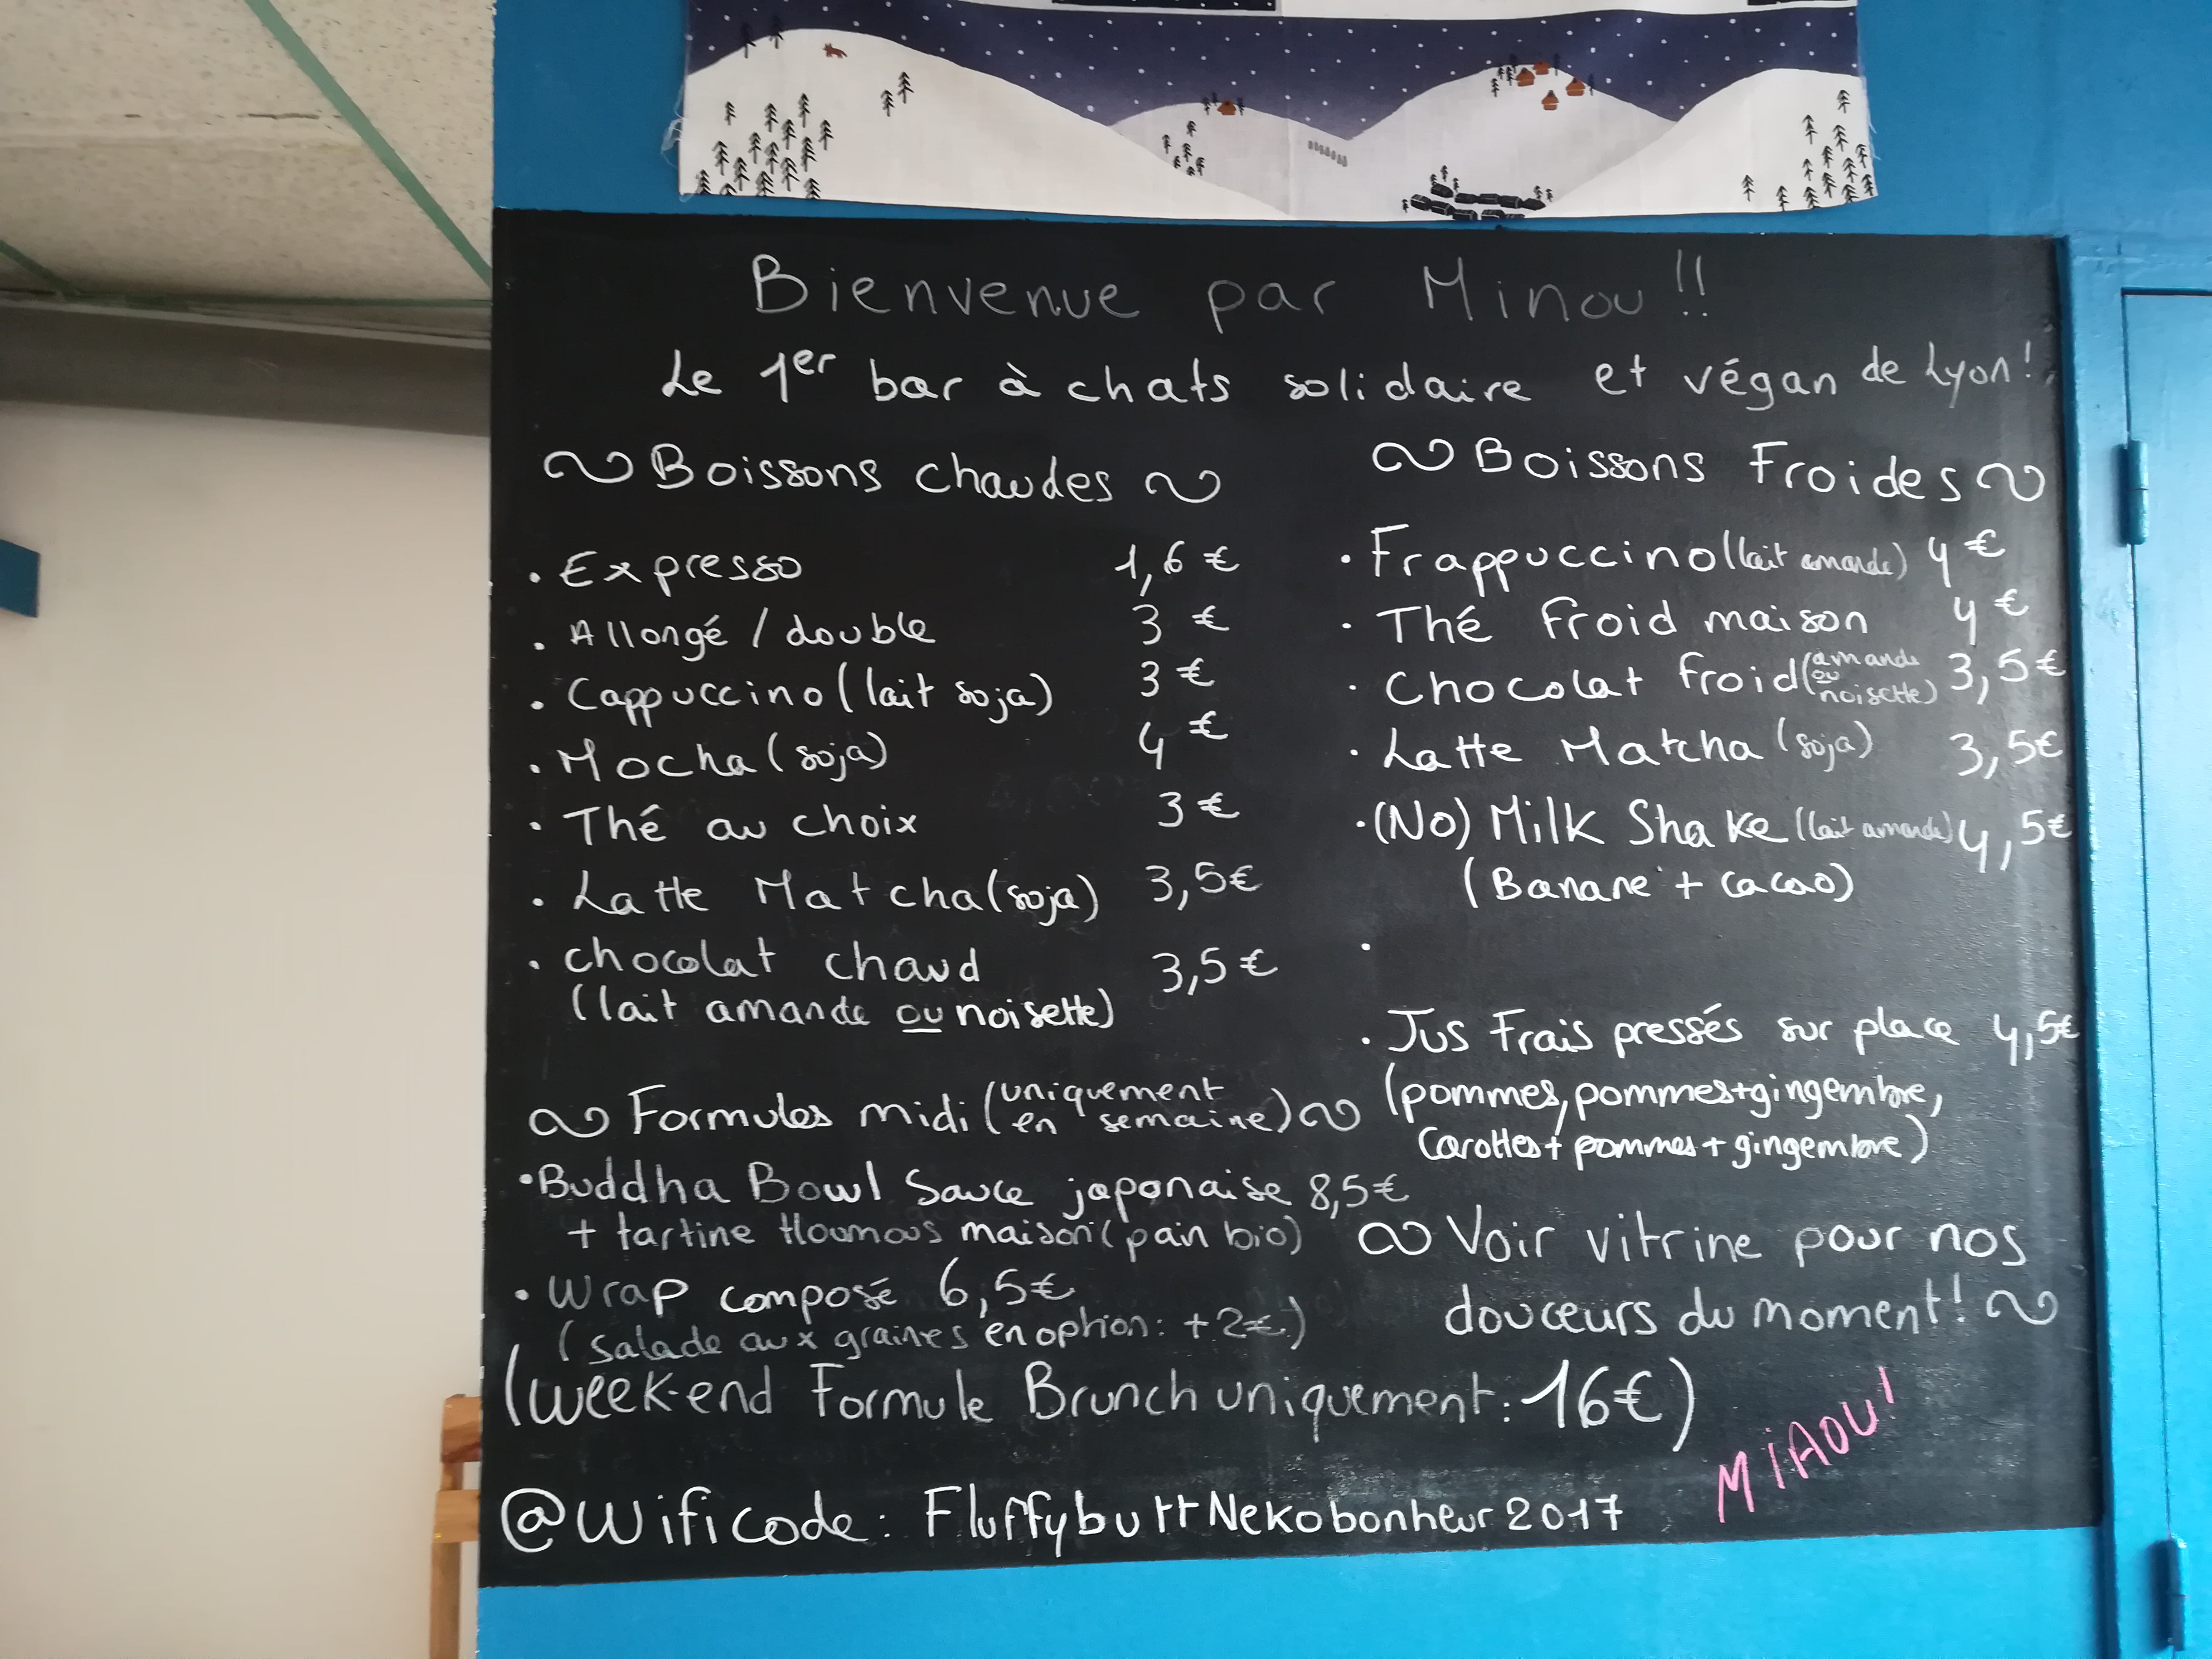 Bienvenue par Minou !!
Le 1er bar à chats solidaire et végan de Lyon !
Boissons chaudes
• Expresso 1,6 €
• Allongé / double 3 €
• Cappuccino (lait soja) 3 €
• Mocha (soja) 4 €
• Thé au choix 3 €
• Latte Matcha (soja) 3,5€
• chocolat chaud 3,5 €
(lait amande ou noisette)
Formules midi (uniquement en semaine)
• Buddha Bowl Sauce japonaise 8,5€
+ tartine Houmous maison (pain bio)
• Wrap composé 6,5€
(salade aux graines en option : +2€)
(week-end Formule Brunch uniquement : 16€)
@Wificode : FluffybuttNekobonheur2017
Boissons Froides
• Frappuccino (lait amande) 4 €
• Thé froid maison 4 €
• Chocolat froid (amande ou noisette) 3,5€
• Latte Matcha (soja) 3,5€
• (No) Milk Shake (lait amande) 4,5€
(Banane + cacao)
•
• Jus Frais pressés sur place 4,5€
(pommes, pommes+gingembre,
carottes + pommes + gingembre)
Voir vitrine pour nos
douceurs du moment !
MiAOU !